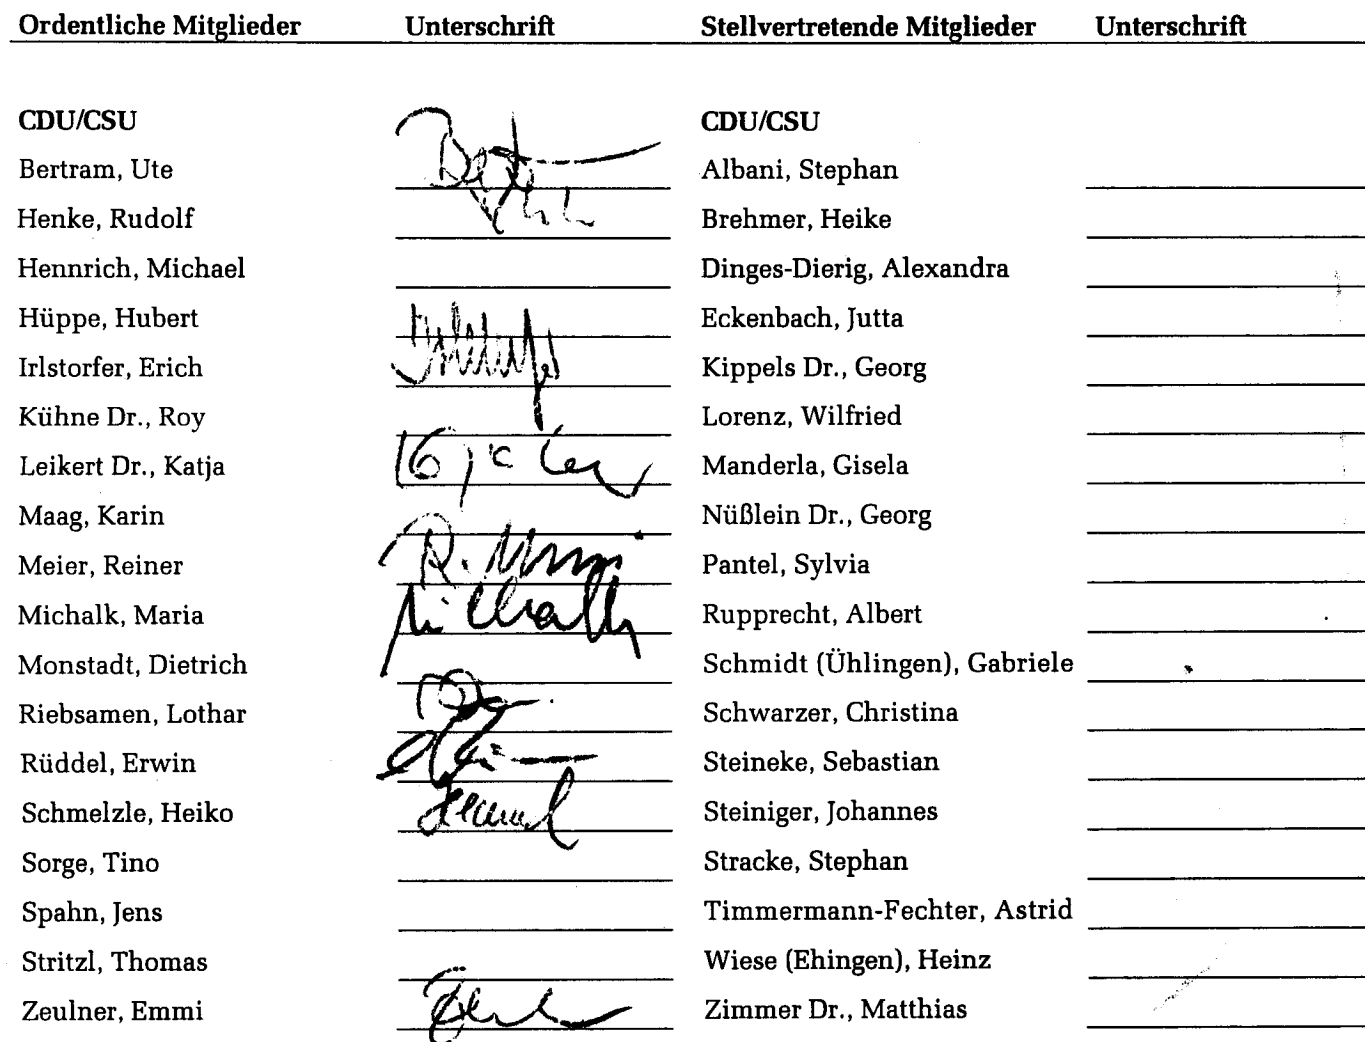 Ordentliche Mitglieder Unterschrift Stellvertretende Mitglieder Unterschrift
CDU/CSU CDU/CSU
Bertram, Ute Albani, Stephan
Henke, Rudolf Brehmer, Heike
Hennrich, Michael Dinges-Dierig, Alexandra
Hüppe, Hubert Eckenbach, Jutta
Irlstorfer, Erich Kippels Dr., Georg
Kühne Dr., Roy Lorenz, Wilfried
Leikert Dr., Katja Manderla, Gisela
Maag, Karin Nüßlein Dr., Georg
Meier, Reiner Pantel, Sylvia
Michalk, Maria Rupprecht, Albert
Monstadt, Dietrich Schmidt (Ühlingen), Gabriele
Riebsamen, Lothar Schwarzer, Christina
Rüddel, Erwin Steineke, Sebastian
Schmelzle, Heiko Steiniger, Johannes
Sorge, Tino Stracke, Stephan
Spahn, Jens Timmermann-Fechter, Astrid
Stritzl, Thomas Wiese (Ehingen), Heinz
Zeulner, Emmi Zimmer Dr., Matthias